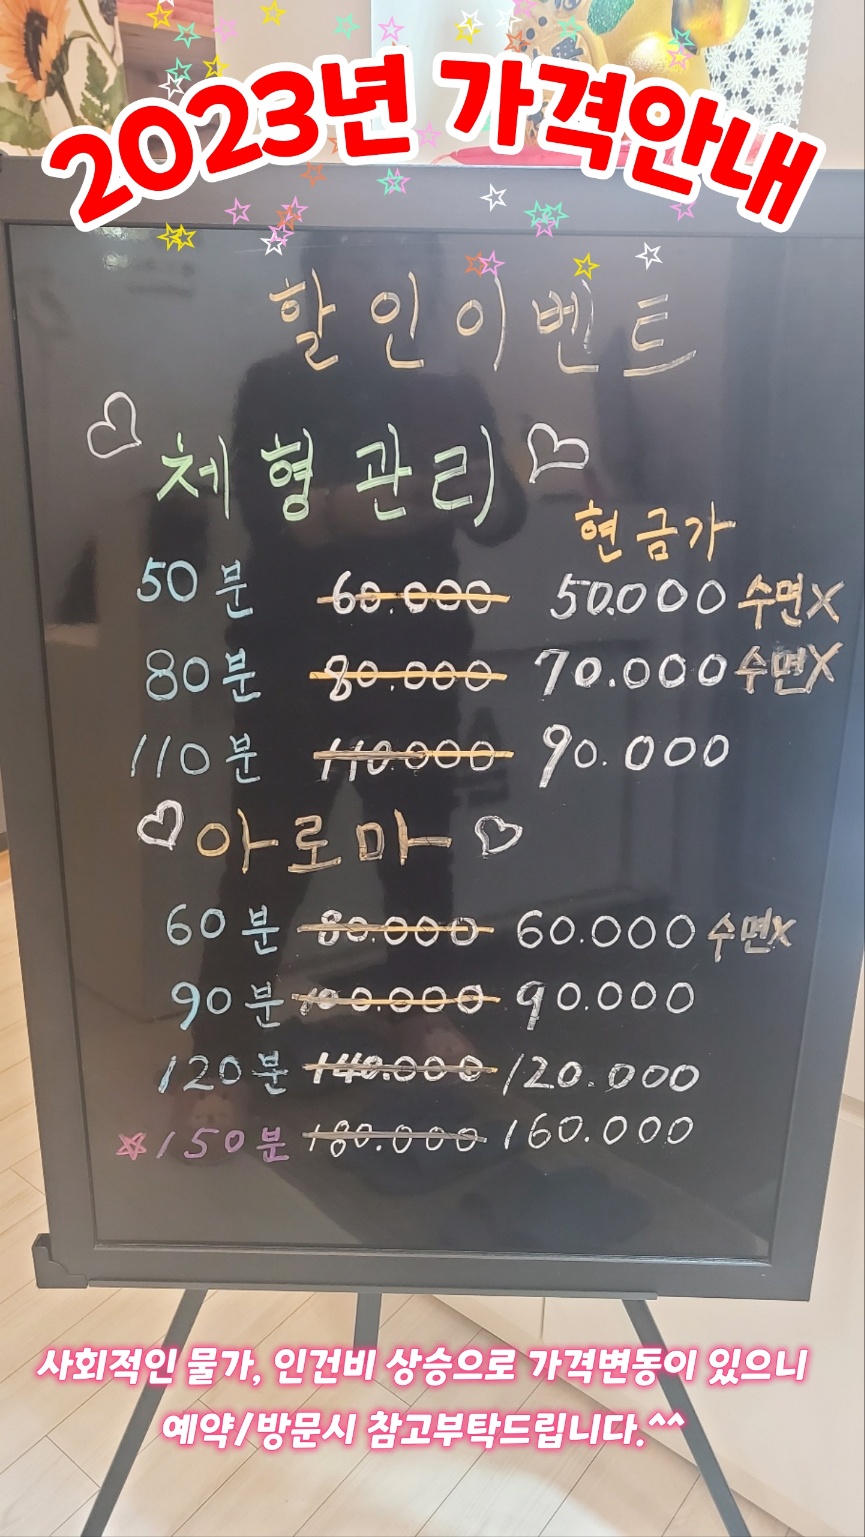 2023년 가격안내
할인이벤트
체형관리
현금가
50분 60.000 50.000 수면X
80분 80.000 70.000 수면X
110분 110.000 90.000
아로마
60분 80.000 60.000 수면X
90분 100.000 90.000
120분 140.000 120.000
150분 180.000 160.000
사회적인 물가, 인건비 상승으로 가격변동이 있으니
예약/방문시 참고부탁드립니다.^^